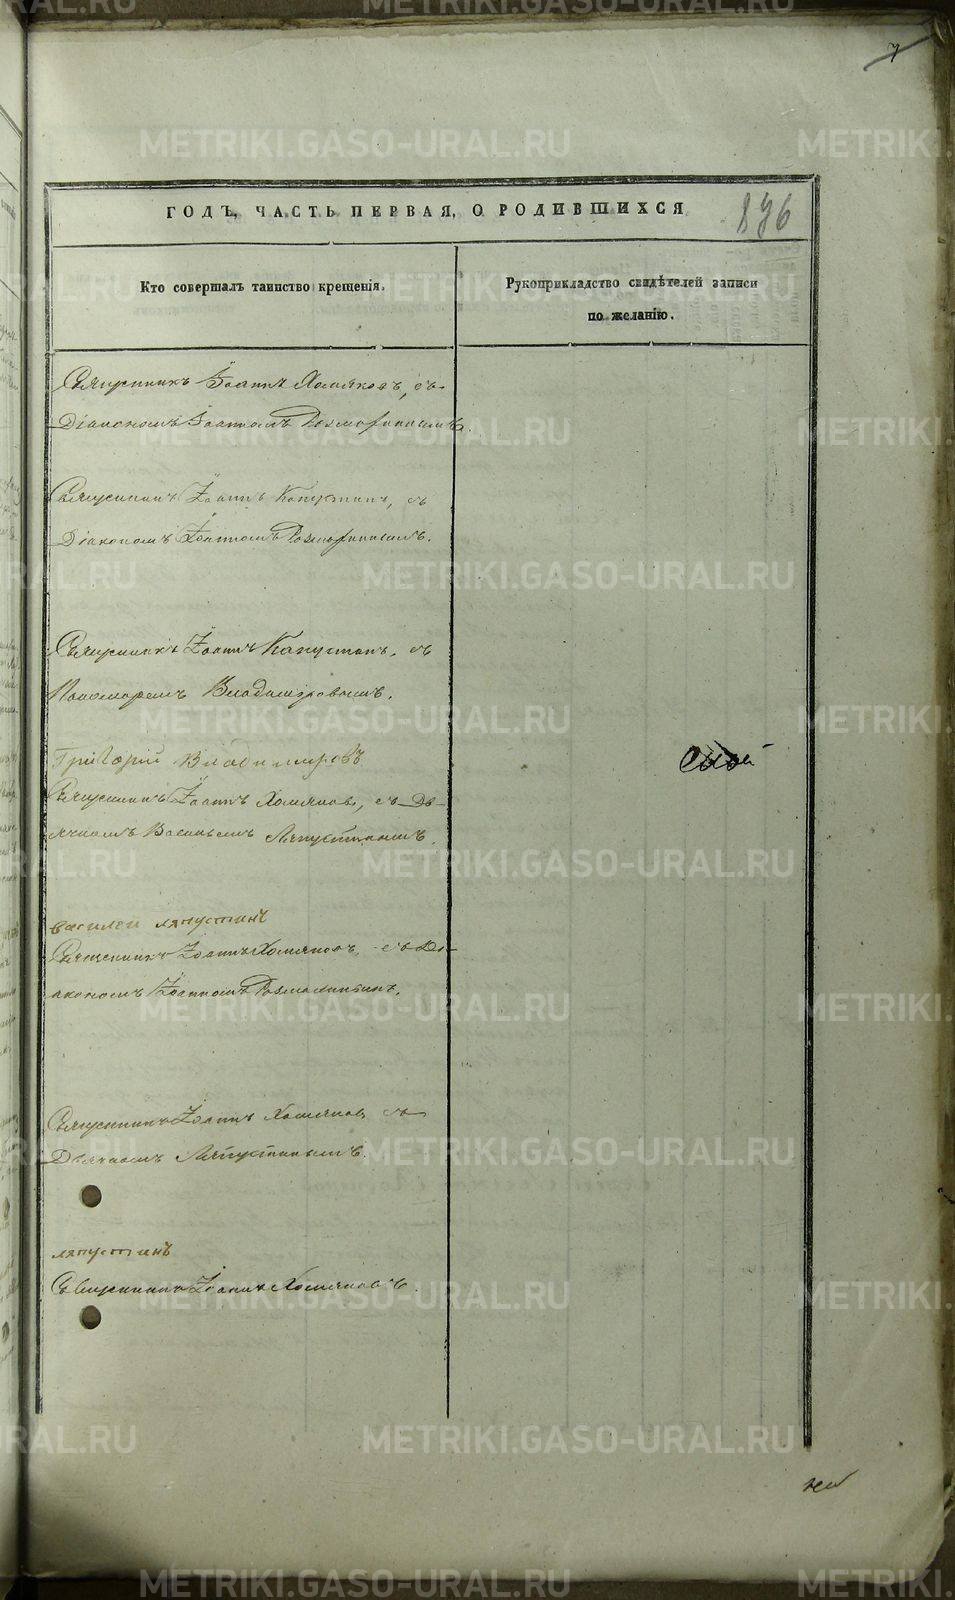 7
ГОДЪ, ЧАСТЬ ПЕРВАЯ, О РОДИВШИХСЯ
896
Кто совершалъ таинство крещенія.
Рукоприкладство свидѣтелей записи
по желанію.
Священникъ Іоаннъ Хомяковъ, съ
Діакономъ Іоанномъ
Священникъ Іоаннъ Капустинъ, съ
Діакономъ Іоанномъ
Священникъ Іоаннъ Капустинъ, съ
Пономаремъ Владиміровымъ.
Григорий Владимировъ
Священникъ Іоаннъ Хомяковъ, съ Дь-
ячкомъ Васильемъ Ляпустинымъ.
василеи ляпустинъ
Священникъ Іоаннъ Хомяковъ, съ Ді-
акономъ Іоанномъ
Священникъ Іоаннъ Хомяковъ, съ
Дьячкомъ Ляпустинымъ.
ляпустинъ
Священникъ Іоаннъ Хомяковъ.
METRIKI.GASO-URAL.RU